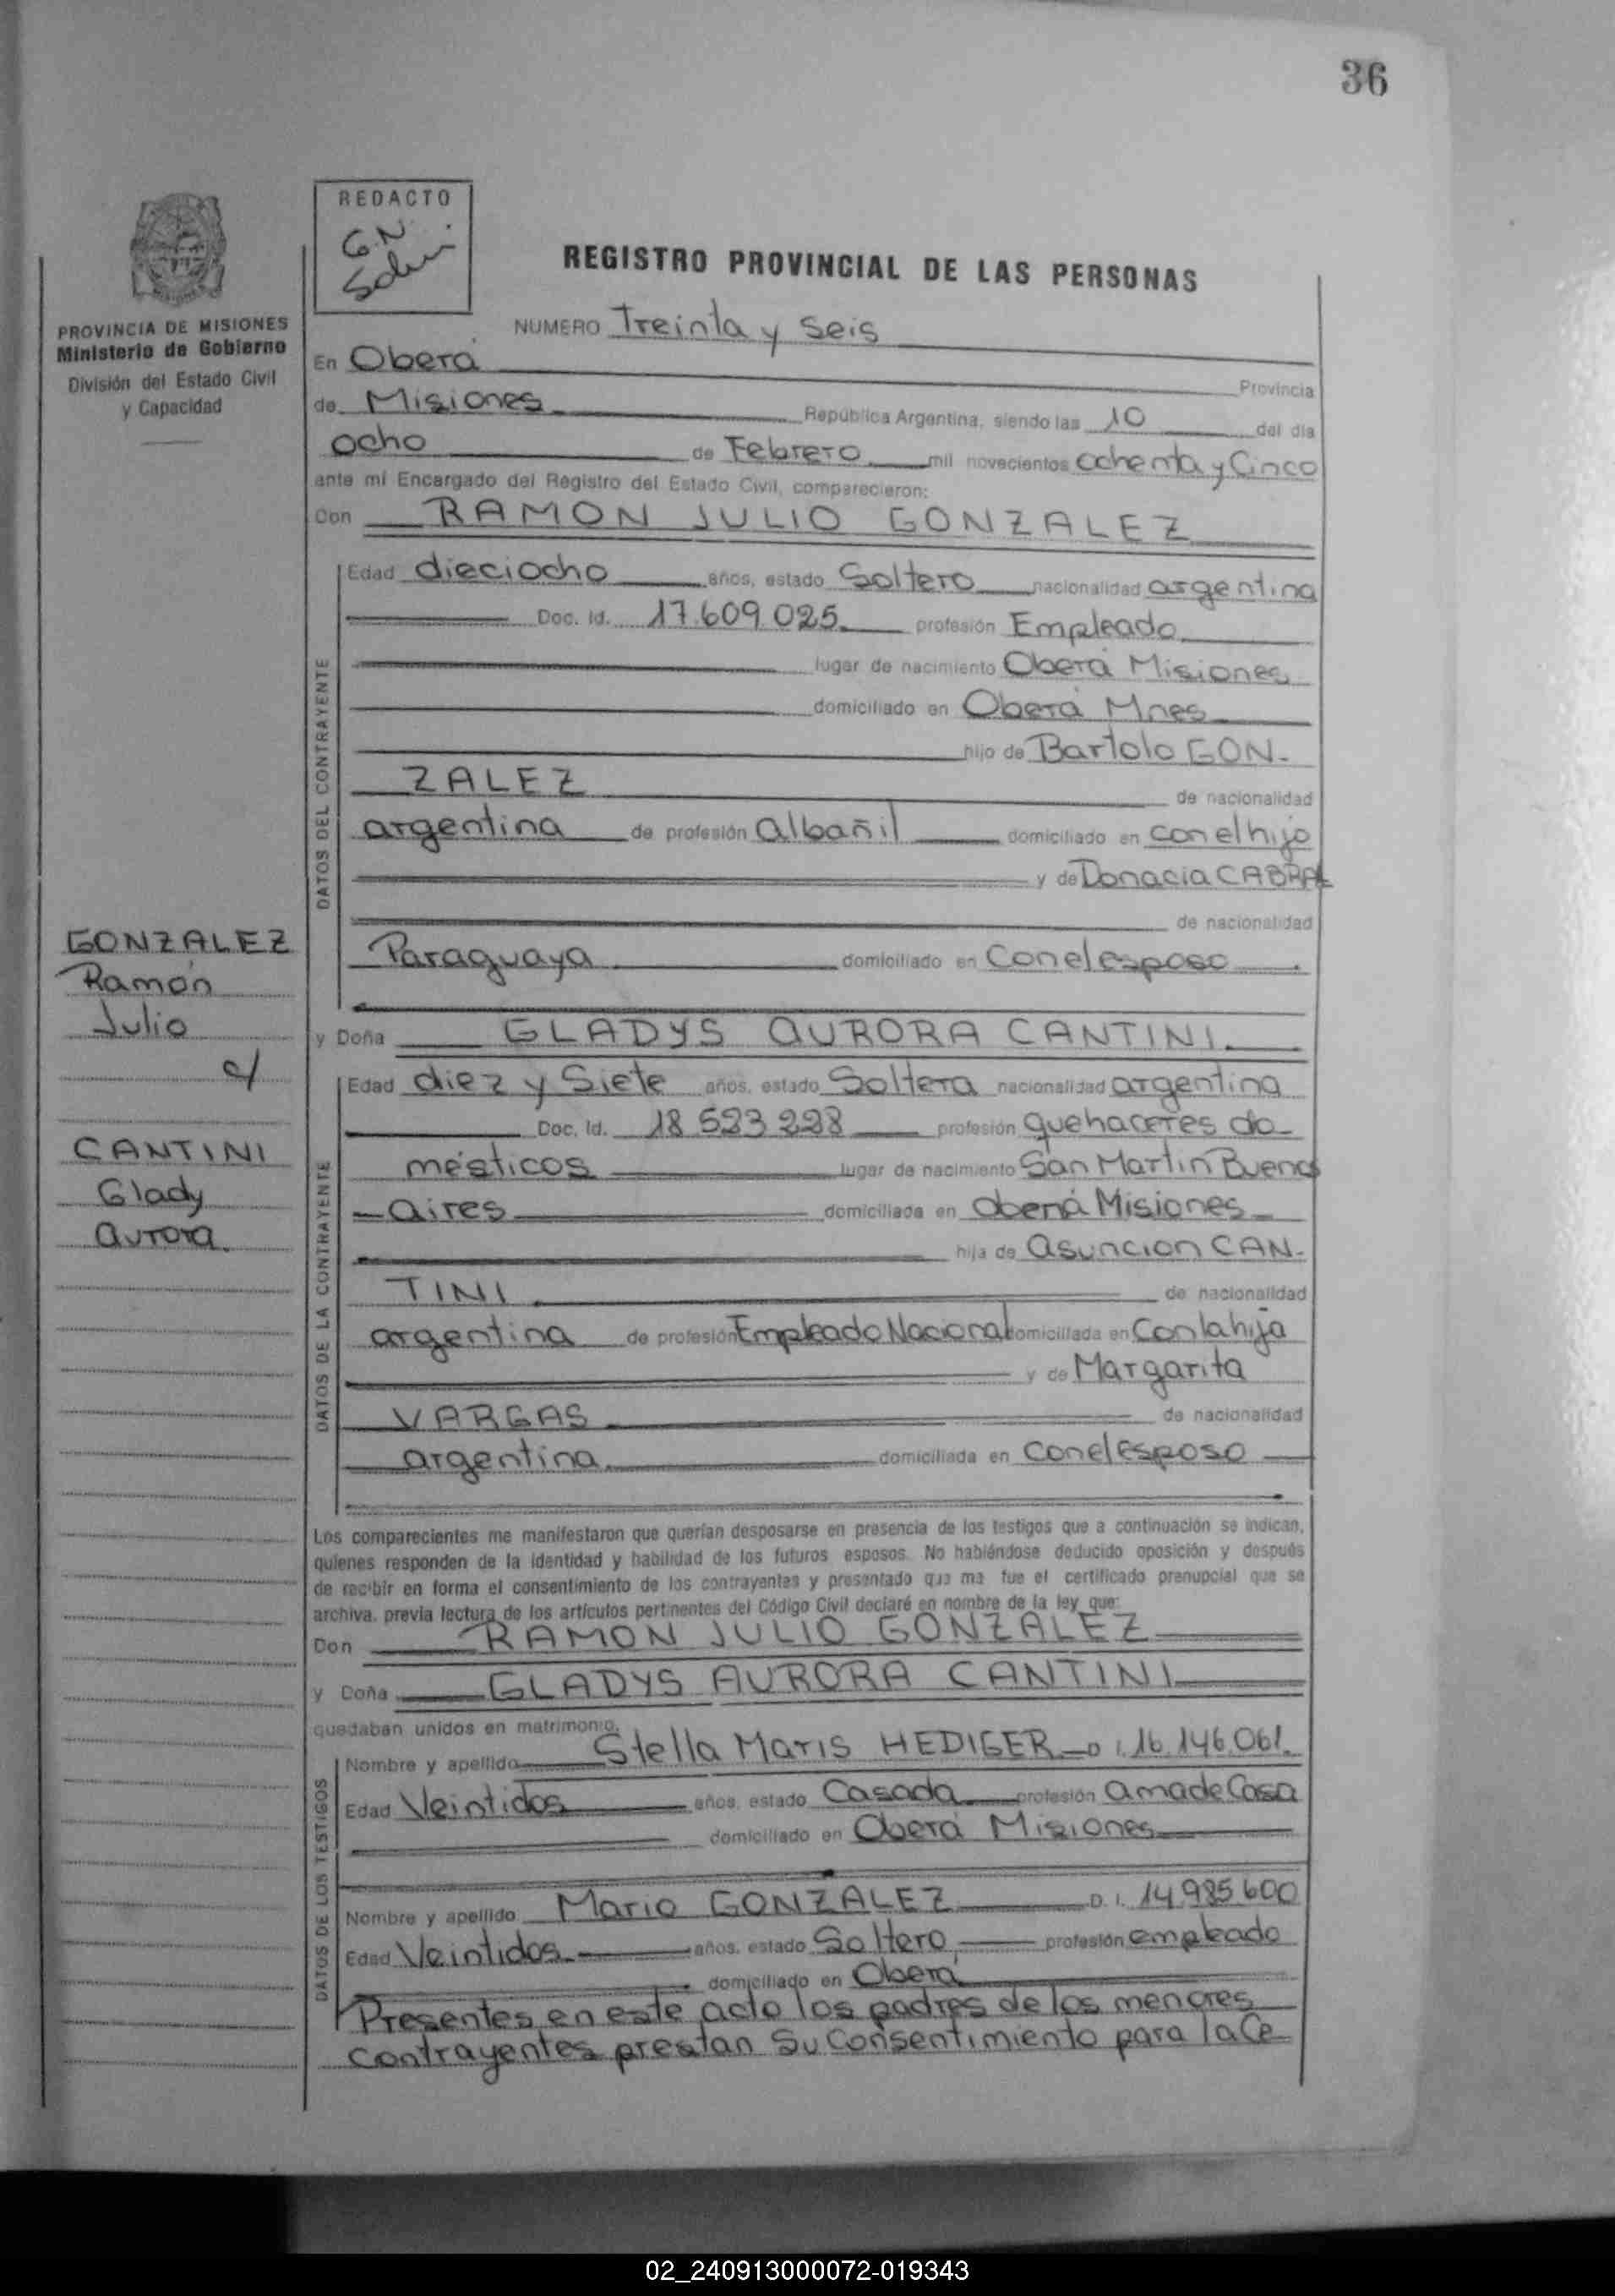 36
REDACTO
GN
REGISTRO PROVINCIAL DE LAS PERSONAS
PROVINCIA DE MISIONES
Ministerio de Gobierno
División del Estado Civil
y Capacidad
NUMERO Treinta y Seis
En Oberá Provincia
de Misiones República Argentina, siendo las 10 del día
ocho de Febrero mil novecientos ochenta y Cinco
ante mí Encargado del Registro del Estado Civil, comparecieron:
Don RAMON JULIO GONZALEZ
DATOS DEL CONTRAYENTE
Edad dieciocho años, estado Soltero nacionalidad argentina
Doc. Id. 17.609.025 profesión Empleado
lugar de nacimiento Oberá Misiones
domiciliado en Oberá Mnes
hijo de Bartolo GON-
ZALEZ de nacionalidad
argentina de profesión albañil domiciliado en con el hijo
y de Donacia CABRAL
de nacionalidad
Paraguaya domiciliado en Con el esposo
GONZALEZ
Ramón
Julio
c/
CANTINI
Glady
aurora.
y Doña GLADYS AURORA CANTINI
DATOS DE LA CONTRAYENTE
Edad diez y Siete años, estado Soltera nacionalidad argentina
Doc. Id. 18.523.228 profesión quehaceres do-
mésticos lugar de nacimiento San Martin Buenos
-Aires domiciliada en Oberá Misiones
hija de Asuncion CAN-
TINI de nacionalidad
argentina de profesión Empleado Nacional domiciliada en Con la hija
y de Margarita
VARGAS de nacionalidad
argentina domiciliada en Con el Esposo
Los comparecientes me manifestaron que querían desposarse en presencia de los testigos que a continuación se indican,
quienes responden de la identidad y habilidad de los futuros esposos. No habiéndose deducido oposición y después
de recibir en forma el consentimiento de los contrayentes y presentado que me fue el certificado prenupcial que se
archiva, previa lectura de los artículos pertinentes del Código Civil declaré en nombre de la ley que:
Don RAMON JULIO GONZALEZ
y Doña GLADYS AURORA CANTINI
quedaban unidos en matrimonio.
DATOS DE LOS TESTIGOS
Nombre y apellido Stella Maris HEDIGER D.I. 16.146.061.
Edad Veintidos años, estado Casada profesión ama de Casa
domiciliado en Oberá Misiones
Nombre y apellido Mario GONZALEZ D.I. 14.985.600
Edad Veintidos años, estado Soltero profesión empleado
domiciliado en Oberá
Presentes en este acto los padres de los menores
contrayentes prestan Su Consentimiento para la Ce
02_240913000072-019343